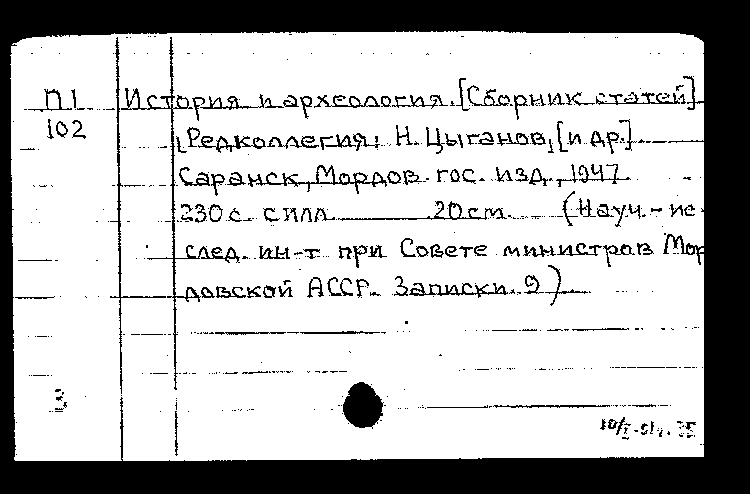 П1 История и археология. [Сборник статей]
102 [Редколлегия: Н. Цыганов, [и др.]
Саранск, Мордов. гос. изд., 1947.
230 с. с илл. 20 см. (Науч.-ис-
след. ин-т при Совете министров Мор
довской АССР. Записки. 9)